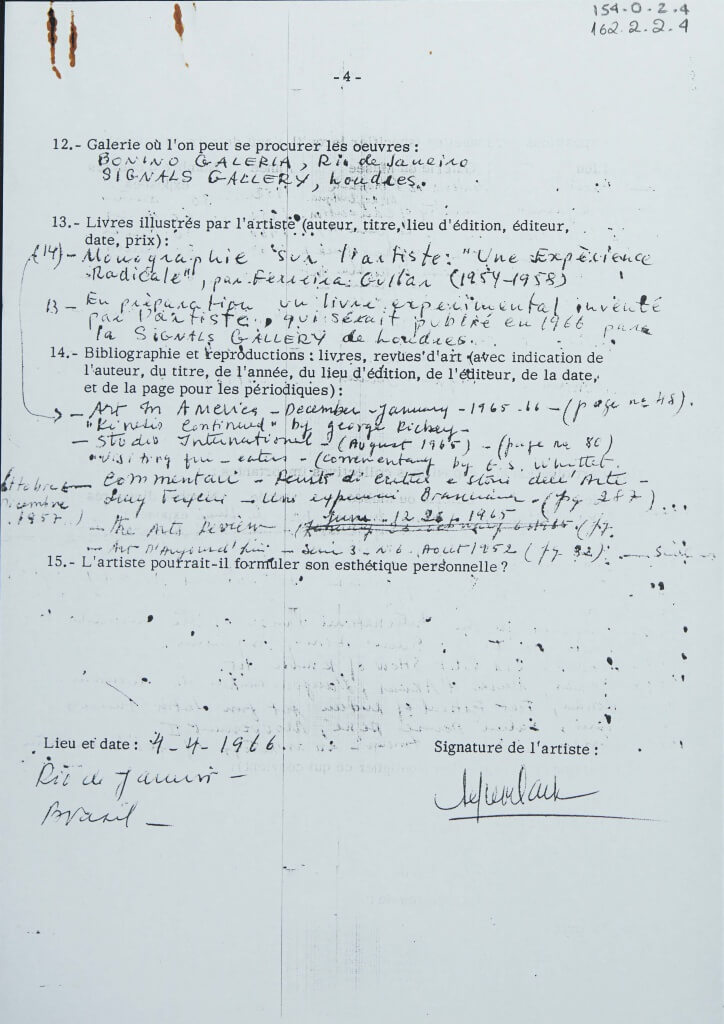 154.0.2.4
162.2.2.4
- 4 -
12.- Galerie où l'on peut se procurer les oeuvres :
BONINO GALERIA, Rio de Janeiro
SIGNALS GALLERY, Londres.
13.- Livres illustrés par l'artiste (auteur, titre, lieu d'édition, éditeur,
date, prix) :
(14) - Monographie sur l'artiste: "Une Expèrience
Radicale", par Ferreira Gullar (1954-1958)
13 - En préparation un livre experimental inventé
par l'artiste, qui serait publié en 1966 para
la SIGNALS GALLERY de Londres.
14.- Bibliographie et reproductions : livres, revues d'art (avec indication de
l'auteur, du titre, de l'année, du lieu d'édition, de l'éditeur, de la date,
et de la page pour les périodiques) :
- Art In America - December - January - 1965-66 - (page nº 48).
"Kinetic Continued" by george Rickey -
- Studio International - (August 1965) - (page nº 80)
"Visiting - (commentary by
Ottobre
Dicembre
1957)
- Commentari - di critica e storia dell'Arte -
- Une (pg 287)
June - 12 26, 1965
- The Arts Review - (pg.
- Art D'Aujourd'hui - Serie 3 - Nº 6. Aout 1952 (pg 32).
15.- L'artiste pourrait-il formuler son esthétique personnelle ?
Lieu et date : 4-4-1966.
Signature de l'artiste :
Rio de Janeiro -
Brasil -